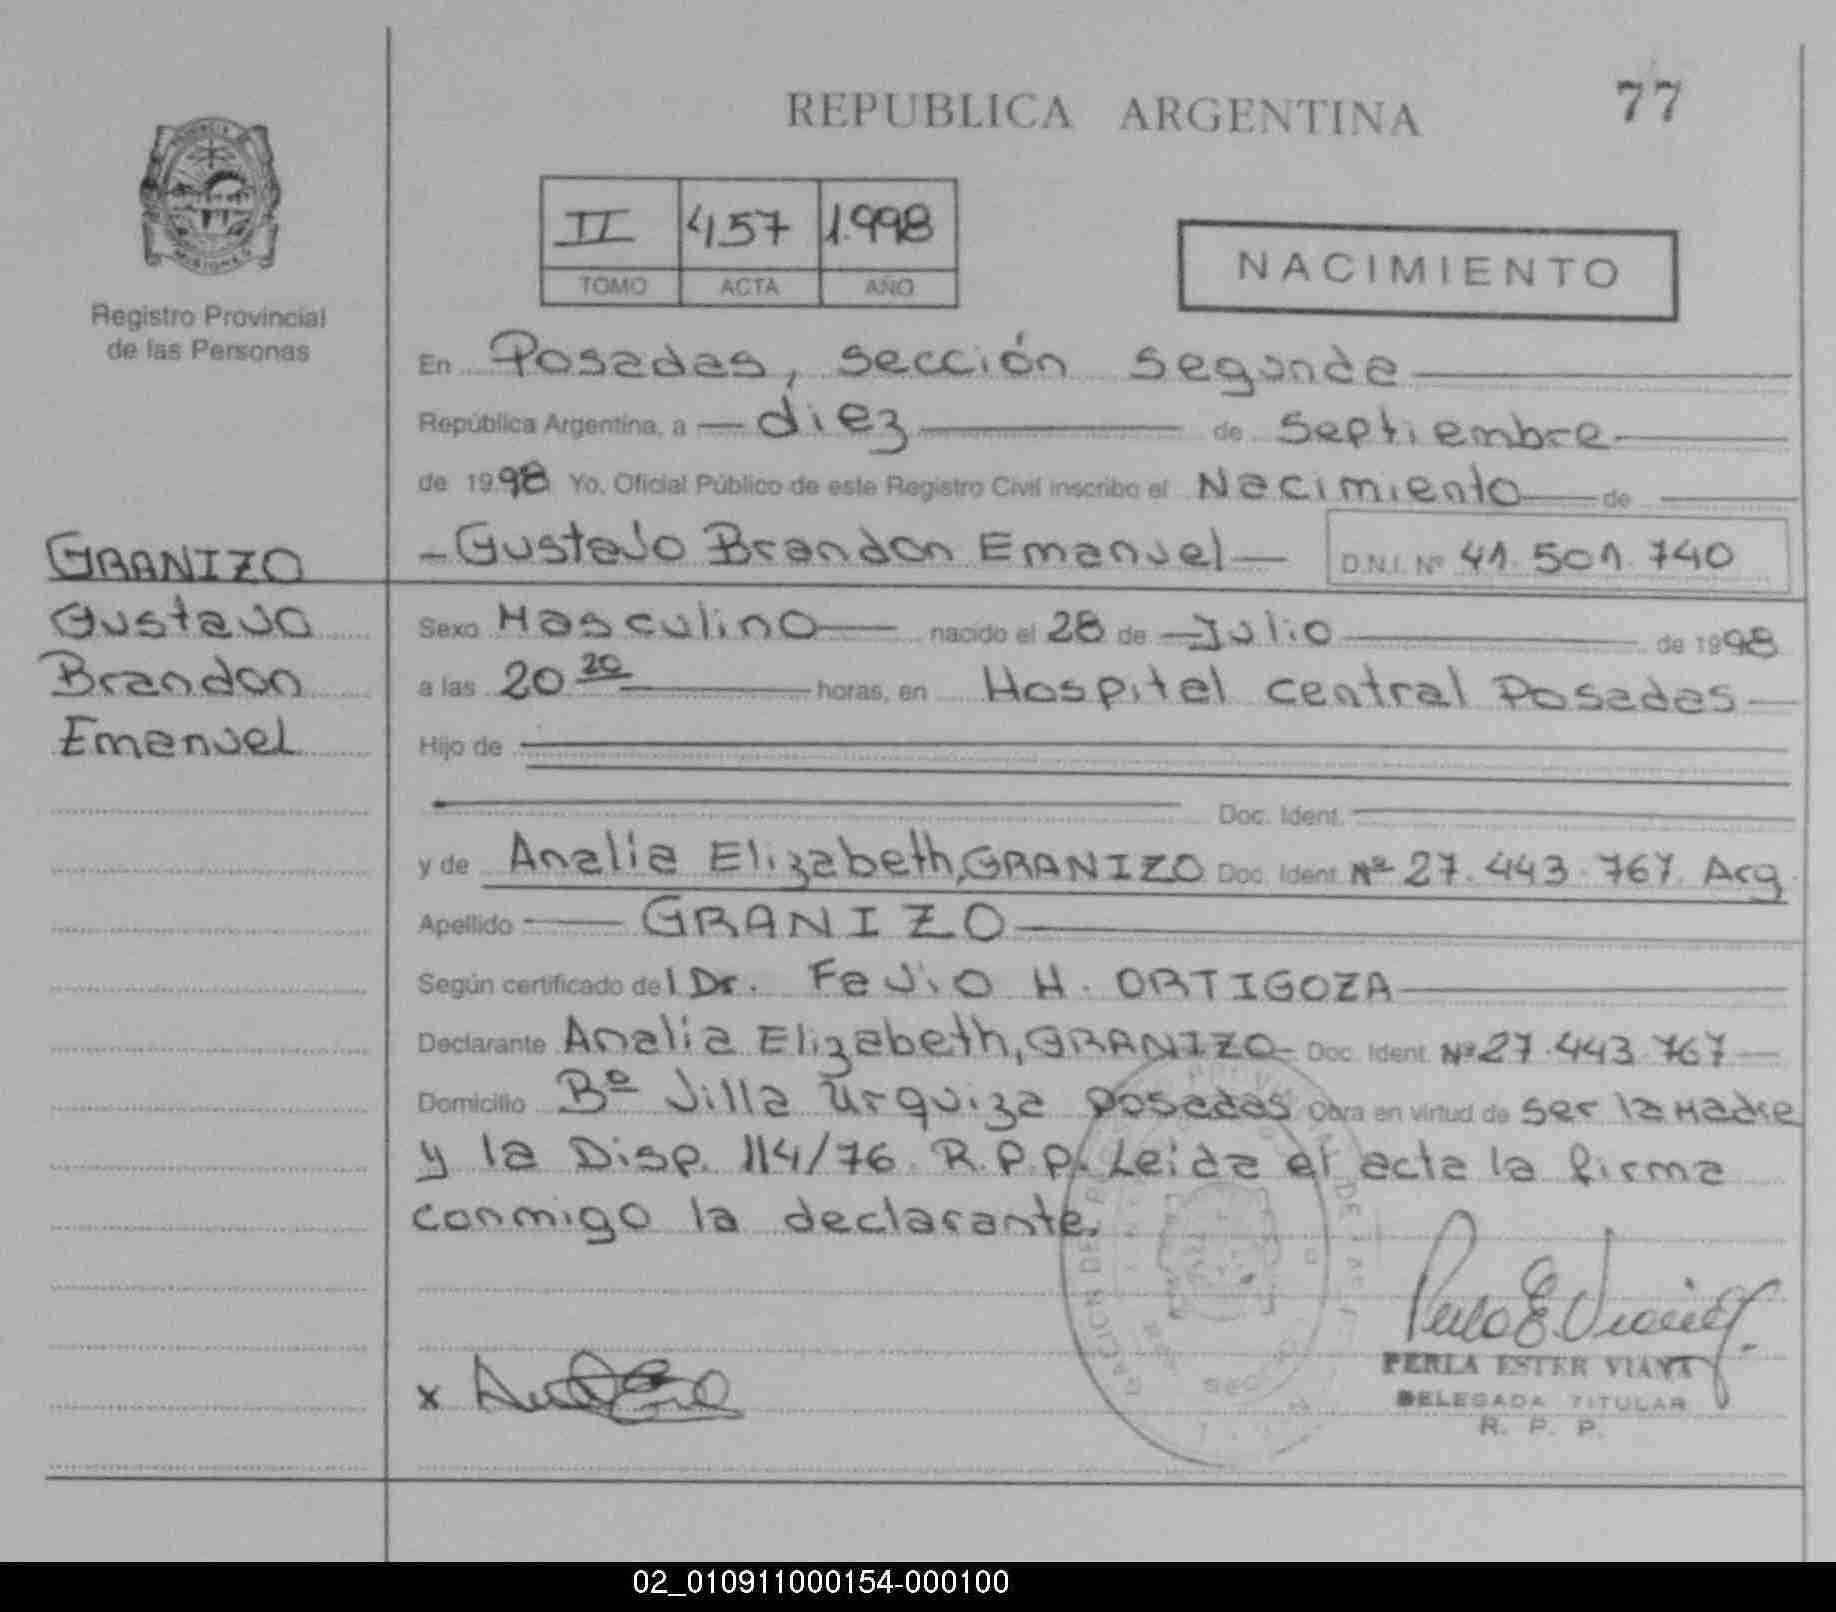 REPUBLICA ARGENTINA
77
II 457 1.998
TOMO ACTA AÑO
NACIMIENTO
Registro Provincial
de las Personas
En Posadas, sección segunda
República Argentina, a diez de septiembre
de 1998 Yo, Oficial Público de este Registro Civil inscribo el Nacimiento de
GRANIZO
Gustavo
Brandon
Emanuel
Gustavo Brandon Emanuel D.N.I. Nº 41.501.740
Sexo Masculino nacido el 28 de Julio de 1998
a las 20 20 horas, en Hospital central Posadas
Hijo de
Doc. Ident.
y de Analia Elizabeth, GRANIZO Doc. Ident. Nº 27.443.767. Arg.
Apellido GRANIZO
Según certificado del Dr. Favio H. ORTIGOZA
Declarante Analia Elizabeth, GRANIZO Doc. Ident. Nº 27.443.767
Domicilio Bº Villa Urquiza Posadas Obra en virtud de ser la Madre
y la Disp. 114/76. R.P.P. Leida el acta la firma
conmigo la declarante.
x
PERLA ESTER VIANA
DELEGADA TITULAR
R. P. P.
02_010911000154-000100